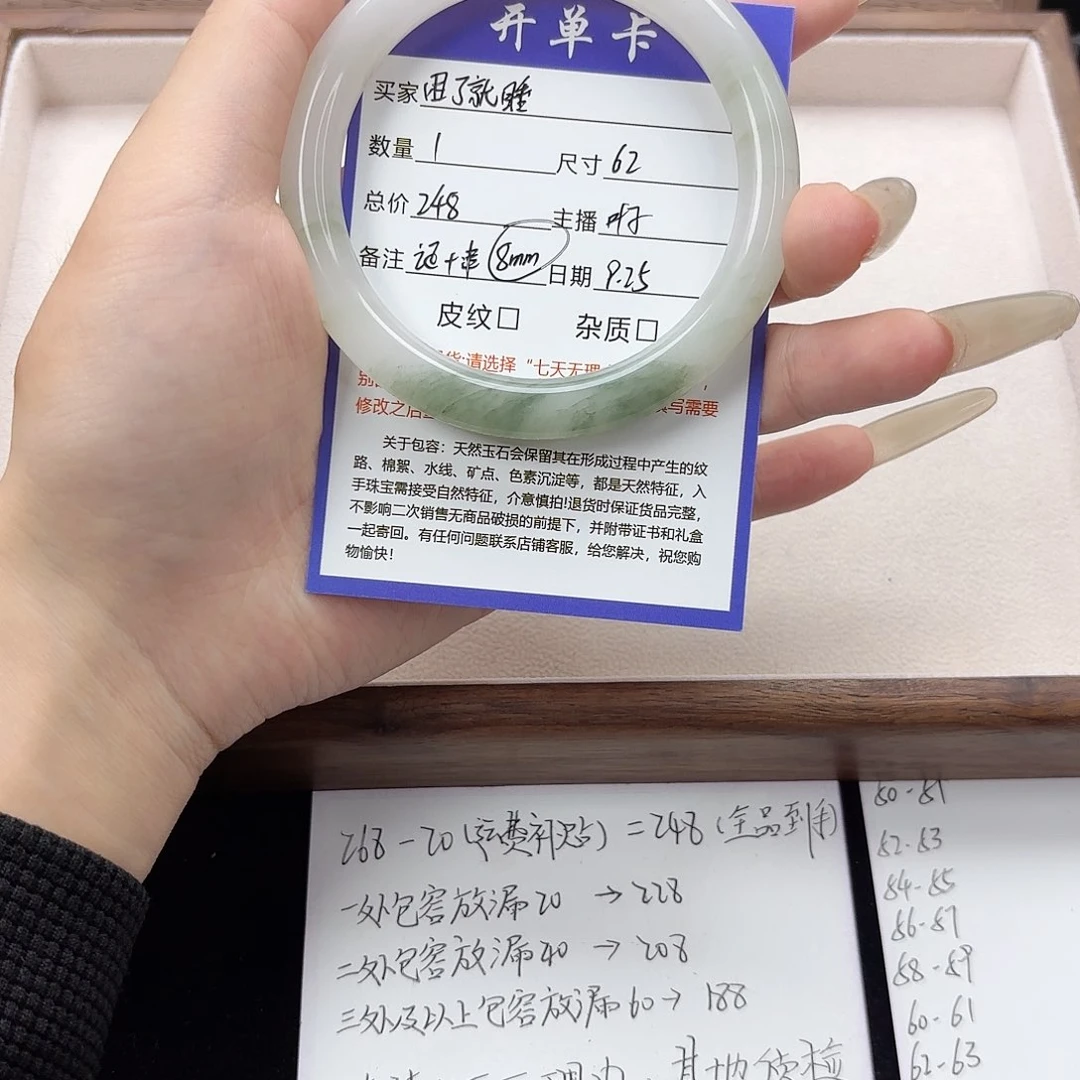 开单卡
买家 困了就睡
数量 1 尺寸 62
总价 248 主播
备注 送十串 8mm 日期 9.25
皮纹□ 杂质□
货:请选择“七天无理
修改之后 写需要
关于包容:天然玉石会保留其在形成过程中产生的纹
路、棉絮、水线、矿点、色素沉淀等,都是天然特征,入
手珠宝需接受自然特征,介意慎拍!退货时保证货品完整,
不影响二次销售无商品破损的前提下,并附带证书和礼盒
一起寄回。有任何问题联系店铺客服,给您解决,祝您购
物愉快!
268-20(运费补贴)=248(全品到手)
一处包容放漏20 → 228
二处包容放漏40 → 208
三处及以上包容放漏60→ 188
理由,其他质检
50-51
52-53
54-55
56-57
58-59
60-61
62-63